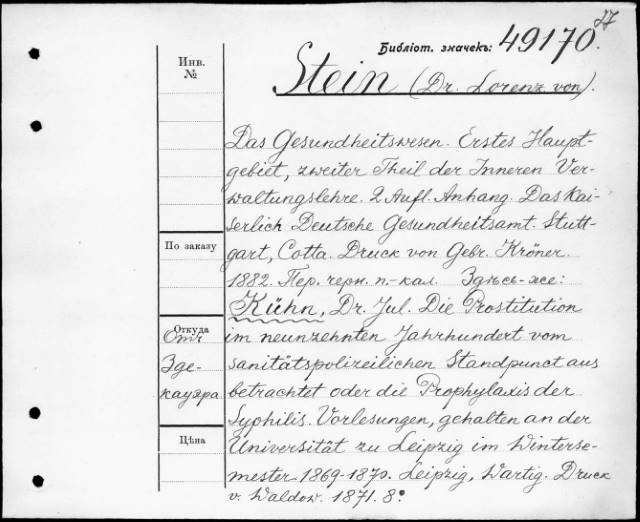 27
Библіот. значекъ: 49170.
Stein (Dr. Lorenz von).
Инв.
№
По заказу
Откуда
Отъ
Зде-
кауэра
Цѣна
Das Gesundheitswesen. Erstes Haupt-
gebiet, zweiter Theil der Inneren Ver-
waltungslehre. 2 Aufl. Anhang. Das Kai-
serlich Deutsche Gesundheitsamt. Stutt-
gart, Cotta. Druck von Gebr. Kröner.
1882. Пер. черн. п.-кал. Здѣсь-же:
Kühn, Dr. Jul. Die Prostitution
im neunzehnten Jahrhundert vom
sanitätspolizeilichen Standpunct aus
betrachtet oder die Prophylaxis der
Syphilis. Vorlesungen, gehalten an der
Universität zu Leipzig im Winterse-
mester 1869-1870. Leipzig, Wartig. Druck
v. Waldow. 1871. 8º